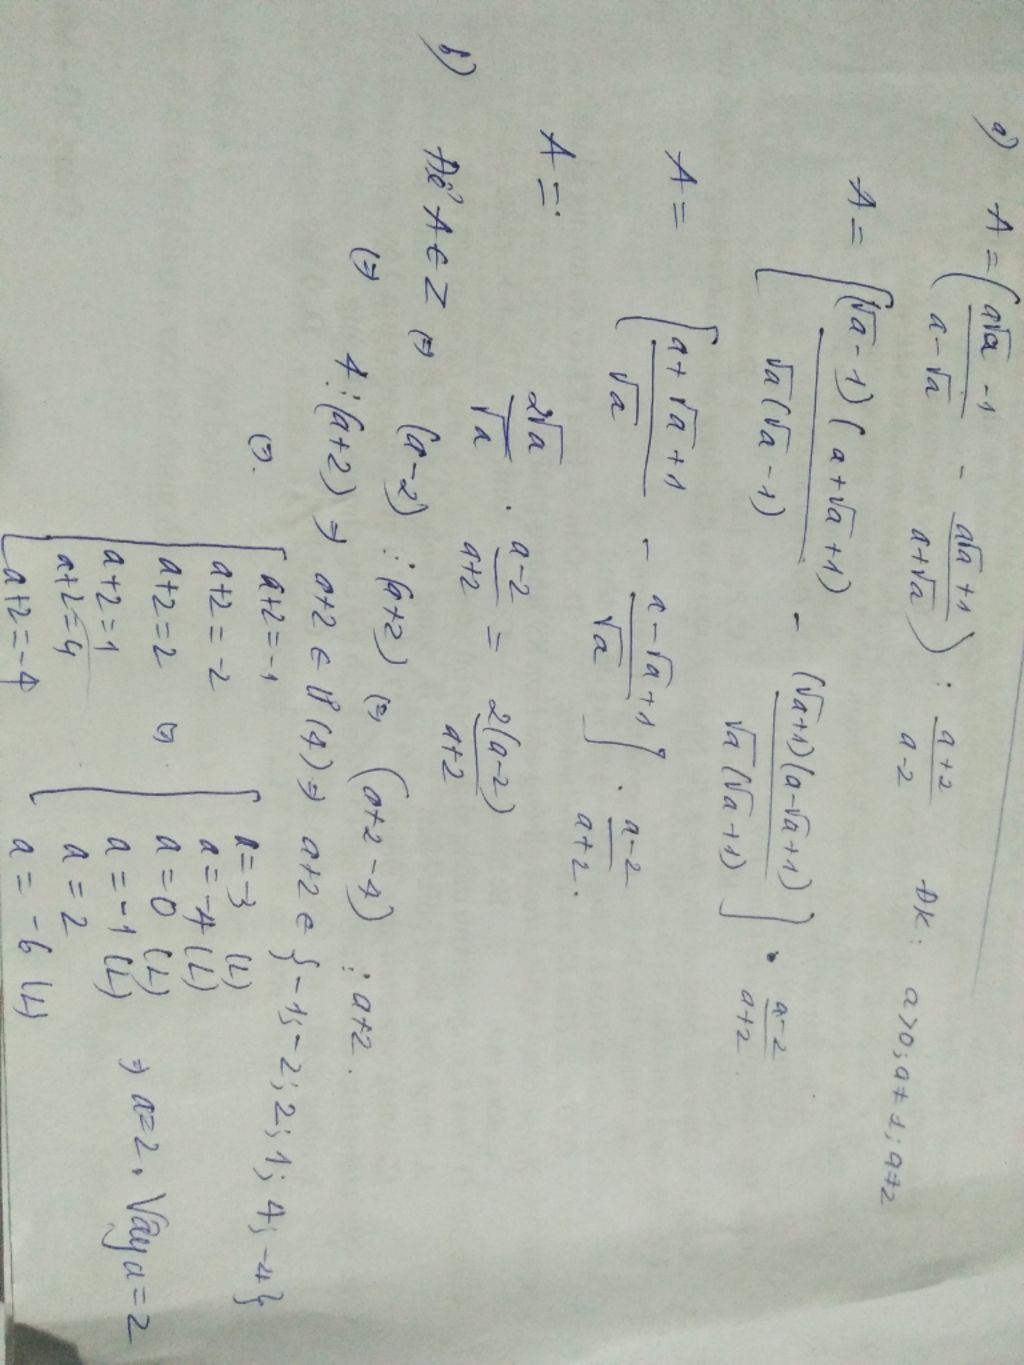 a) A = (a√a - 1 / a - √a - a√a + 1 / a + √a) : a+2 / a-2 ĐK: a>0; a≠1; a≠2
A = [(√a - 1)(a + √a + 1) / √a(√a - 1) - (√a+1)(a-√a+1) / √a(√a+1)] . a-2 / a+2
A = [a + √a + 1 / √a - a - √a + 1 / √a] . a-2 / a+2.
A = 2√a / √a . a-2 / a+2 = 2(a-2) / a+2
b) Để A ∈ Z ⇔ (a-2) ⋮ (a+2) ⇔ (a+2-4) ⋮ a+2.
⇔ 4 ⋮ (a+2) ⇒ a+2 ∈ Ư(4) ⇒ a+2 ∈ {-1; -2; 2; 1; 4; -4}
⇔ [ a+2 = -1 [ a = -3 (L)
a+2 = -2 a = -4 (L)
a+2 = 2 ⇔ a = 0 (L)
a+2 = 1 a = -1 (L) ⇒ a=2. Vậy a = 2
a+2 = 4 a = 2
a+2 = -4 a = -6 (L)